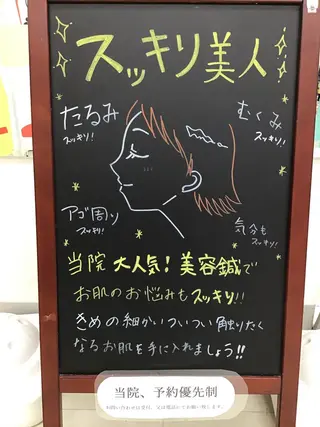 スッキリ美人
たるみ
スッキリ!
むくみ
スッキリ!
アゴ周り
スッキリ!
気分も
スッキリ!
当院 大人気!美容鍼で
お肌のお悩みもスッキリ!!
きめの細かいついつい触りたく
なるお肌を手に入れましょう!!
当院、予約優先制